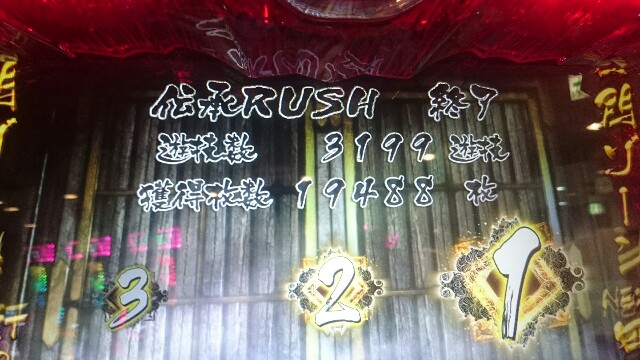 伝承RUSH 終了
遊技数 3199 遊技
獲得枚数 19488 枚
3 2 1